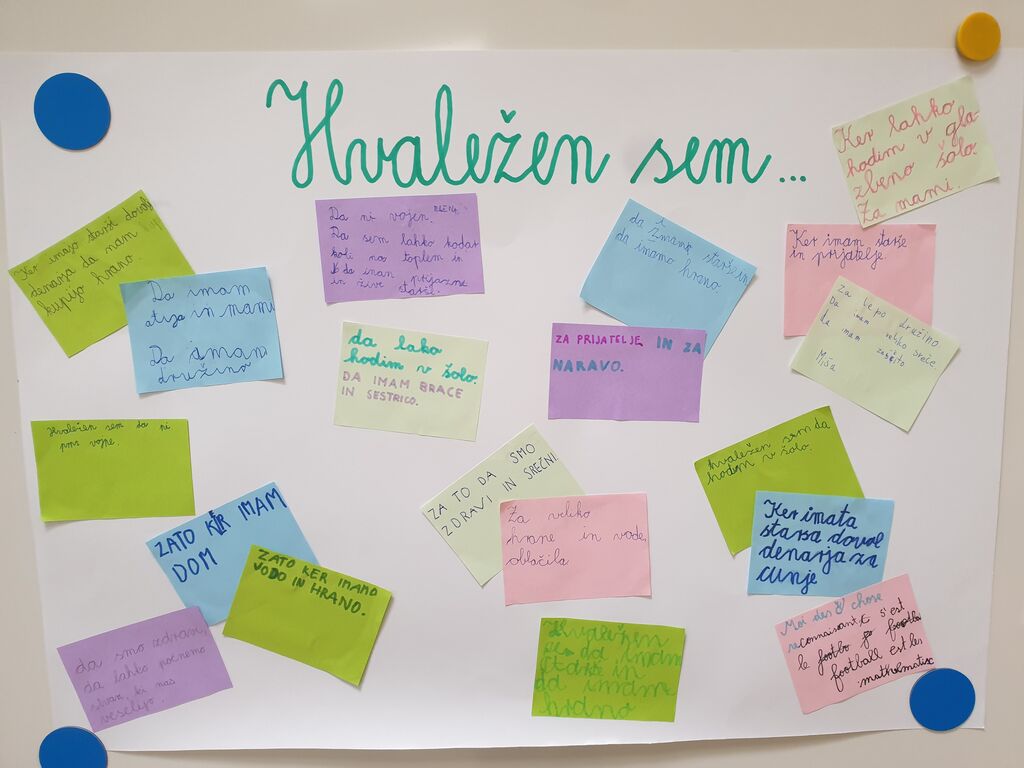 Hvaležen sem...
Ker lahko
hodim v gla-
zbeno šolo.
Za mami.
Ker imajo starši dovolj
denarja da nam
kupijo hrano.
Da imam
atija in mami
Da imam
družino
Da ni vojen.
Da sem lahko kodar
koli na toplem in
da imam prijazne
in žive starše.
da imamo hrano.
Ker imam starše
in prijatelje.
Za lepo družino
Da imam veliko sreče.
da imam
Miša
da lako
hodim v šolo.
DA IMAM BRACE
IN SESTRICO.
ZA PRIJATELJE IN ZA
NARAVO.
Hvaležen sem da ni
vojne.
ZATO KER IMAM
DOM
ZATO KER IMAMO
VODO IN HRANO.
ZA TO DA SMO
ZDRAVI IN SREČNI.
Za veliko
hrane in vode,
oblačila.
hvaležen sem da
hodim v šolo.
Ker imata
starša dovol
denarja za
cunje
da smo zdravi,
da lahko počnemo
stvari, ki nas
veselijo.
Hvaležen
sem da imam
starše in
da imamo
hrano
Moi des chose
reconnaisant,x s'est
le footbo
football est les
mathematix